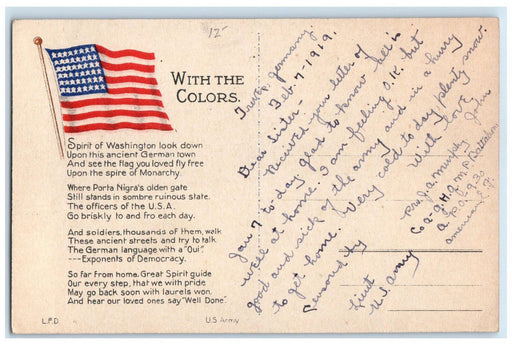 12-
WITH THE
COLORS.
Spirit of Washington look down
Upon this ancient German town
And see the flag you loved fly free
Upon the spire of Monarchy.
Where Porta Nigra's olden gate
Still stands in sombre ruinous state.
The officers of the U.S.A.
Go briskly to and fro each day.
And soldiers, thousands of them, walk
These ancient streets and try to talk
The German language with a "Oui".
---Exponents of Democracy.
So far from home, Great Spirit guide
Our every step, that we with pride
May go back soon with laurels won,
And hear our loved ones say "Well Done".
L.P.D.
U.S. Army
Germany
Feb. 7-1919.
Dear Sister-
Received your letter of
Jan 7 to-day. glad to know all is
well at home. I am feeling O.K. but
good and sick of the army and in a hurry
to get home. Very cold to-day, plenty snow.
With Love
John
Censored by
Lieut
U.S. Army
Pvt. J. A. Murphy
Co 2-G.H.Q.M.P. Battalion
A.P.O. 930
American E. F.